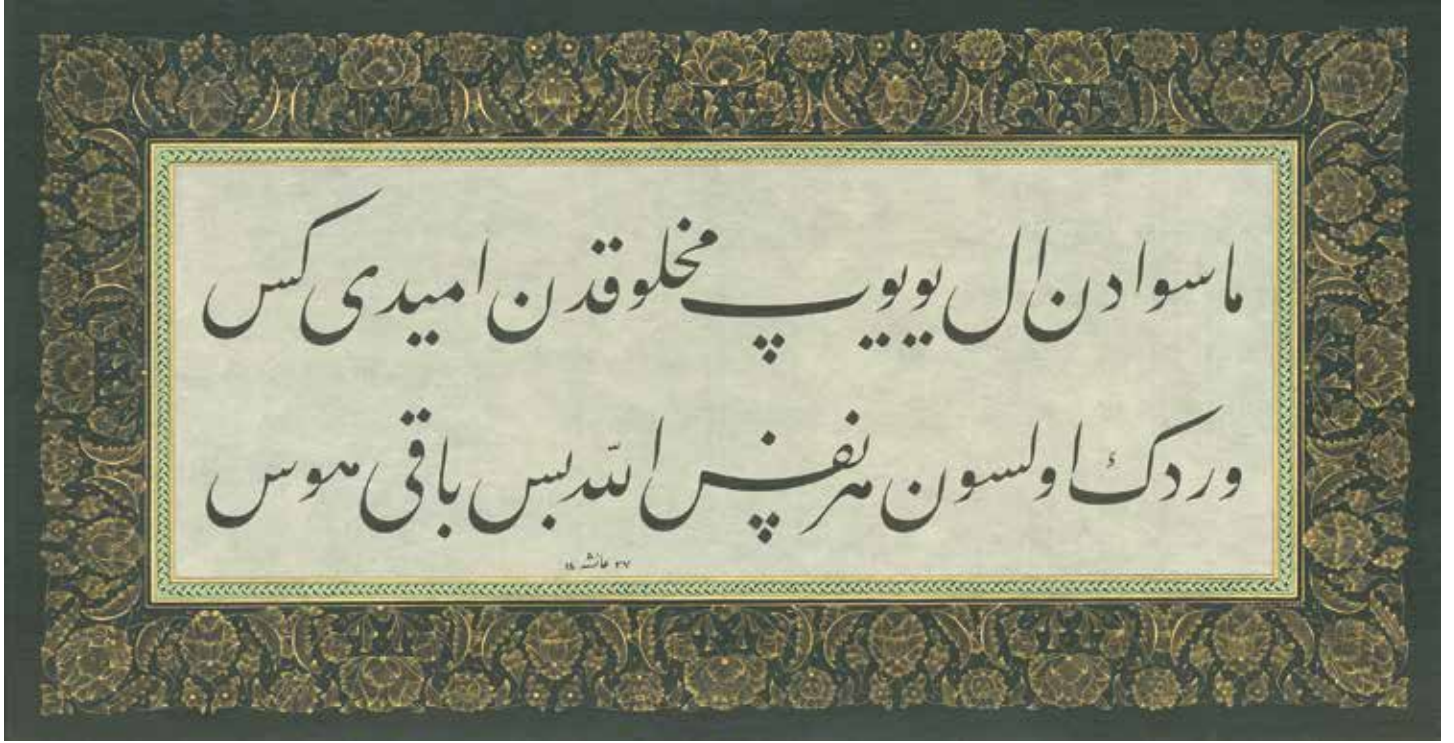 ماسوادن ال یویوپ مخلوقدن امیدی کس
وردك اولسون هر نفس الله بس باقی هوس
عائشه